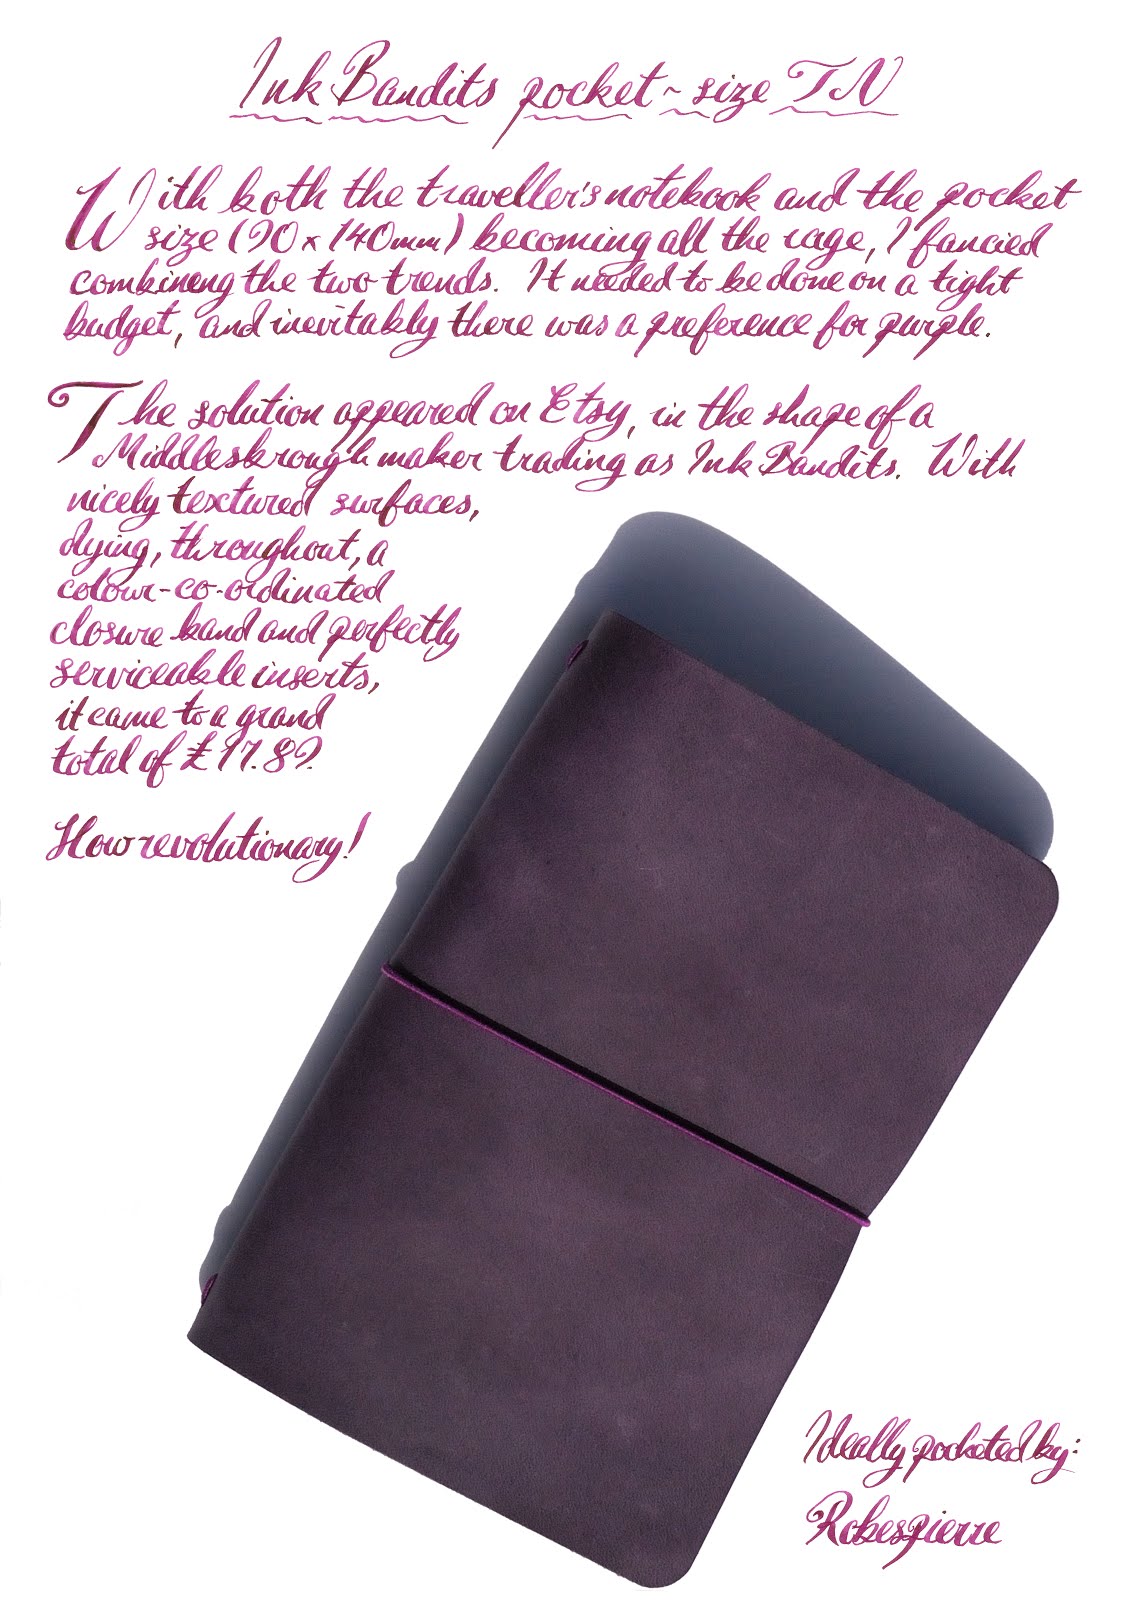 Ink Bandits pocket~size TN
With both the traveller's notebook and the pocket
size (90 x 140mm) becoming all the rage, I fancied
combining the two trends. It needed to be done on a tight
budget, and inevitably there was a preference for purple.
The solution appeared on Etsy, in the shape of a
Middlesbrough maker trading as Ink Bandits. With
nicely textured surfaces,
dying, throughout, a
colour-co-ordinated
closure band and perfectly
serviceable inserts,
it came to a grand
total of £17.89.
How revolutionary!
Ideally pocketed by:
Robespierre